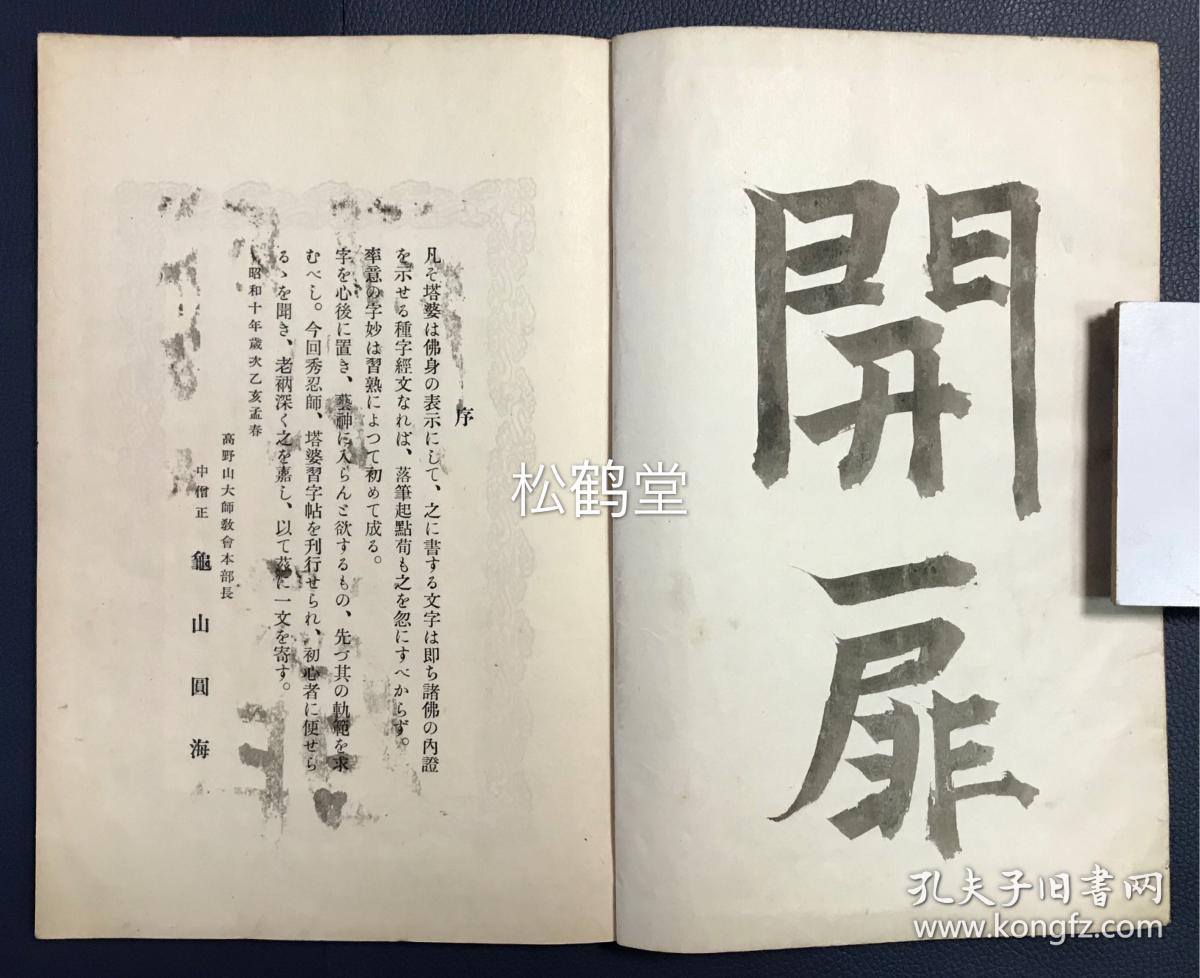 開扉
序
凡そ塔婆は佛身の表示にして、之に書する文字は即ち諸佛の內證
を示せる種字經文なれば、落筆起點苟も之を忽にすべからず。
率意の字妙は習熟によつて初めて成る。
字を心後に置き、藝神に入らんと欲するもの、先づ其の軌範を求
むべし。今回秀忍師、塔婆習字帖を刊行せられ、初心者に便せら
るゝを聞き、老衲深く之を嘉し、以て茲に一文を寄す。
昭和十年歲次乙亥孟春
高野山大師敎會本部長
中僧正 龜山圓海
松鹤堂
孔夫子旧书网
www.kongfz.com